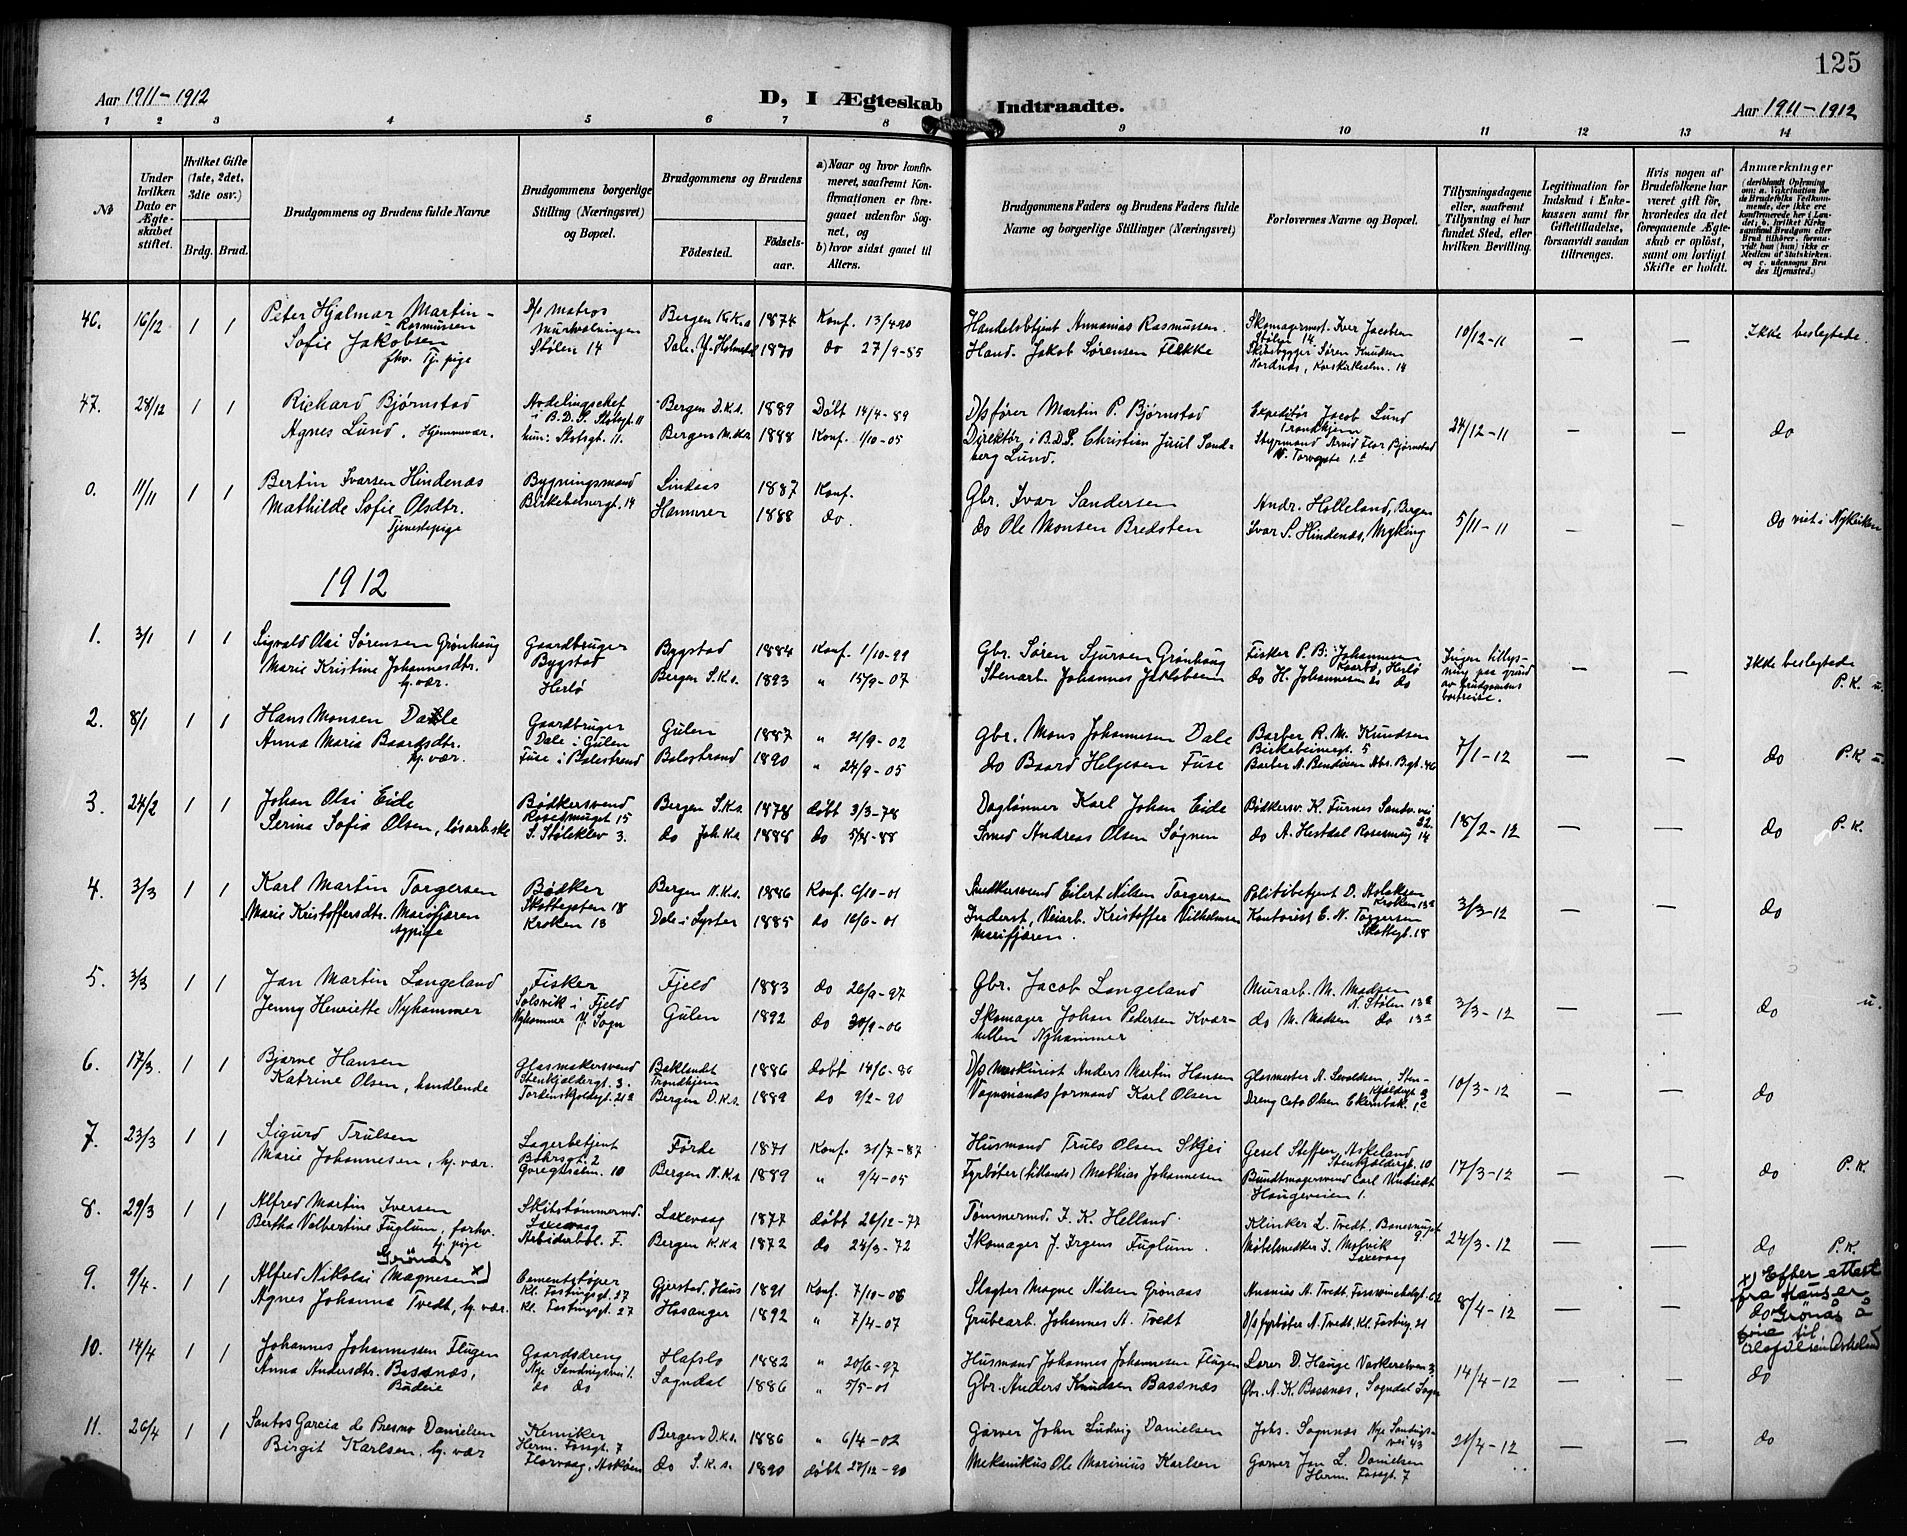 125
Aar 1911-1912
D, I Ægteskab Indtraadte.
Aar 1911-1912
1 2 3 4 5 6 7 8 9 10 11 12 13 14
No
Under hvilken Dato er Ægteskabet stiftet.
Hvilket Gifte (1ste, 2det, 3die osv.)
Brdg. Brud.
Brudgommens og Brudens fulde Navne
Brudgommens borgerlige Stilling (Næringsvei) og Bopæl.
Brudgommens og Brudens
Fødested.
Fødselsaar.
a) Naar og hvor konfirmeret, saafremt Konfirmationen er foregaaet udenfor Sognet, og
b) hvor sidst gaaet til Alters.
Brudgommens Faders og Brudens Faders fulde Navne og borgerlige Stillinger (Næringsvei)
Forlovernes Navne og Bopæl.
Tillysningsdagene eller, saafremt Tillysning ei har fundet Sted, efter hvilken Bevilling.
Legitimation for Indskud i Enkekassen samt for Giftetilladelse, forsaavidt saadan tiltrænges.
Hvis nogen af Brudefolkene har været gift før, hvorledes da det foregaaende Ægteskab er opløst, samt om lovligt Skifte er holdt.
Anmærkninger
46. 16/12 1 1 Peter Hjalmar Martin Rasmussen D/s Matros Murhvalvingen Bergen K.K.s 1874 Konf. 13/4-90 Handelsbetjent Annanias Rasmussen. Skomagermest. Iver Jacobsen Stølen 14 10/12-11 — — Ikke beslegtede.
Sofie Jakobsen fhv. Tj.pige Stølen 14 Dale, Y. Holmedal 1870 do 27/9-85 Hand. Jakob Sørensen Flekke Skibsbygger Søren Knudsen Nordnæs, Korskirkealm. 14
47. 28/12 1 1 Richard Bjørnstad Avdelingschef i B.D.S. Slotsgt. 11 Bergen D.K.s. 1889 Døbt 14/4-89 D/s fører Martin P. Bjørnstad Expeditør Jacob Lund Trondhjem 24/12-11 — — do
Agnes Lund, Hjemmevær. hun: Slotsgt. 11. Bergen M.Ks 1888 Konf. 1/10-05 Direktør i B.D.S. Christian Juul Sandberg Lund. Styrmand Arvid Flor Bjørnstad N. Torvgate 1.a
0. 11/11 1 1 Bertin Ivarsen Hindenæs Bygningsmand Birkebeinergt. 14 Lindaas 1887 Konf. Gbr. Ivar Sandersen Andr. Holleland, Bergen 5/11-11 — — do viet i Nykirken
Mathilde Sofie Olsdtr. Tjenestepige Hammer 1888 do. do Ole Monsen Bredsten Ivar S. Hindenæs, Myking
1912
1. 3/1 1 1 Sigvald Olai Sørensen Grønhaug Gaardbruger Bygstad Bygstad 1884 Konf. 1/10-99 Gbr. Søren Sjursen Grønhaug Fisker P. B. Johannesen Kaarbø, Herlø Ingen tillysning paa grund av brudgommens bortreise. — — Ikke beslegtede P.K. u.
Marie Kristine Johannesdtr. hj.vær. Herlø Bergen S.K.s. 1893 " 15/9-07 Stenarb. Johannes Jakobsen do H. Johannesen ds do
2. 8/1 1 1 Hans Monsen Dale Gaardbruger Dale i Gulen Gulen 1887 " 21/9-02 Gbr. Mons Johannesen Dale Barber R. M. Knudsen Birkebeinergt. 5 7/1-12 — — do P.K u.
Anna Maria Baardsdtr. hj.vær. Fuse i Balestrand Balestrand 1890 " 24/9-05 do Baard Helgesen Fuse Barber A. Bendixen Nbr. Bgt. 46
3. 24/2 1 1 Johan Olai Eide Bødkersvend Rosesmuget 15 Bergen S.K.s 1878 døbt 3/3-78 Daglønner Karl Johan Eide Bødkersv. K. Furnes Sandv. vei 22. 18/2-12 — — do P.K.
Serina Sofia Olsen, løsarbeiske S. Støleklev 3. do Joh.Ks 1888 do 5/8-88 Smed Andreas Olsen Søgnen do A. Hestdal Rosesmug 14
4. 3/3 1 1 Karl Martin Torgersen Bødker Skottegaten 18 Bergen N.K.s. 1886 Konf. 6/10-01 Snedkersvend Eilert Nilsen Torgersen Politibetjent D. Aslaksen Kroken 13a 3/3-12 — — do
Marie Kristoffersdtr. Marifjæren Sypige Kroken 13 Dale i Lyster 1885 do 16/6-01 Inderst, Veiarb. Kristoffer Vilhelmsen Marifjæren. Kontorist E. N. Torgersen Skottegt. 18
5. 3/3 1 1 Jan Martin Langeland Fisker Solsvik i Fjeld Fjeld 1883 do 26/9-97 Gbr. Jacob Langeland Murarb. M. Madsen N. Stølen 13a 3/3-12 — — do u.
Jenny Henriette Nyhammer Nyhammer Y. Sogn Gulen 1892 do 30/9-06 Skomager Johan Pedersen Kværhellen Nyhammer do M. Madsen do 13a
6. 17/3. 1 1 Bjarne Hansen Glasmakersvend Stenkjeldergt. 3. Baklandet Trondhjem 1886 døbt 14/6-86 D/s Maskinist Anders Martin Hansen Glasmester A. Sevaldsen, Stenkjeldergt 3 10/3-12 — — do
Katrine Olsen, handlende Torkensskjoldsgt. 21a Bergen D.K.s. 1889 do 9/2-90 Vognmandsformand Karl Olsen Dreng Cato Olsen Ekernbak. 1c
7. 23/3 1 1 Sigurd Trulsen Lagerbetjent Bohrsgt. 2 Førde 1871 Konf. 31/7-87 Husmand Truls Olsen Skjei Gesel Steffen Askeland Stenkjeldergt. 10 17/3-12 — — do P.K.
Marie Johannesen, hj.vær. 10 Bergen N.K.s. 1889 " 9/4-05 Fyrbøter (tillands) Mathias Johannesen Bundtmagersvend Carl Haugeveien 1.
8. 29/3 1 1 Alfred Martin Iversen Skibstømmermd. Laxevaag Laxevaag 1877 døbt 26/12-77 Tømmermd. I. K. Helland. Klinker L. Tvedt, 9. 24/3-12 — — do P.K.
Bertha Valbertine Fuglum, forhv. tj.pige Arbeiderbol. F. Bergen K.Ks 1872 do 24/3-72 Skomager J. Irgens Fuglum. Møbelsnedker I. Molvik Laxevaag
9. 9/4. 1 1 Alfred Nikolai Magnesen x) Grønås Cementstøper Kl. Fastingsgt. 27 Gjersted, Haus 1891 Konf. 7/10-06 Slagter Magne Nilsen Grønaas Ausmius A. Tvedt, 62 8/4-12 — — x) Efter attest fra Hauser do Grønås å til Olof Olsen Askeland
Agnes Johanna Tvedt, hj.vær. Kl. Fastingsgt. 27 Hosanger 1892 " 7/4-07 Grubearb. Johannes A. Tvedt D/s fyrbøter A. Tvedt, Kl. Fasting. 21
10. 14/4 1 1 Johannes Johannessen Flugen Gaardsdreng Nye Sandviksvei 1. Hafslo 1882 " 20/6-97 Husmand Johannes Johannesen Flugen Lærer D. Hauge Vaskerelven 3. 14/4-12 — — do
Anna Andersdtr. Bassnæs, Budeie do do Sogndal 1886 " 5/5-01 Gbr. Anders Knudsen Bassnæs Gbr. A. K. Bassnæs, Sogndal Sogn
11. 26/4 1 1 Santos Garcia de Presno Danielsen Kemiker Herm. Fossgt. 7 Bergen D.K.s. 1886 " 6/4-02 Garver John Ludvig Danielsen Johs. Sognnæs Nye Sandviksvei 43 21/4-12 — — do
Birgit Karlsen, hj.vær Florvaag, Askøen do S.K.s. 1890 døbt 27/12-90 Mekanikus Ole Marinius Karlsen Garver Jan L. Danielsen Herm. Fossgt. 7